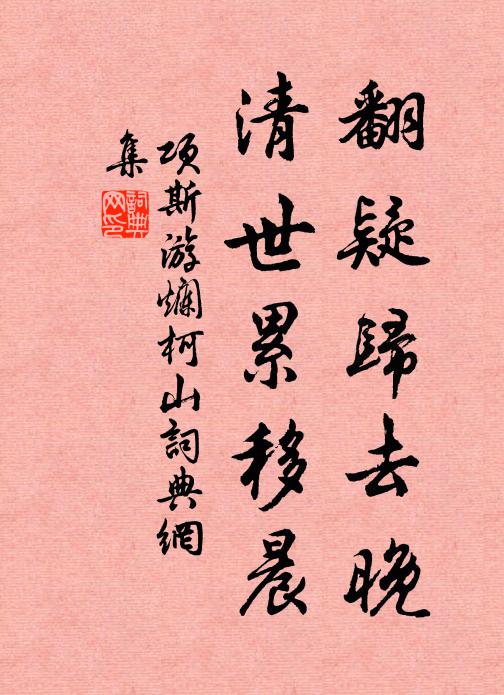 翻疑歸去晚
清世累移晨
項斯游爛柯山詞典網
集
詞典網印